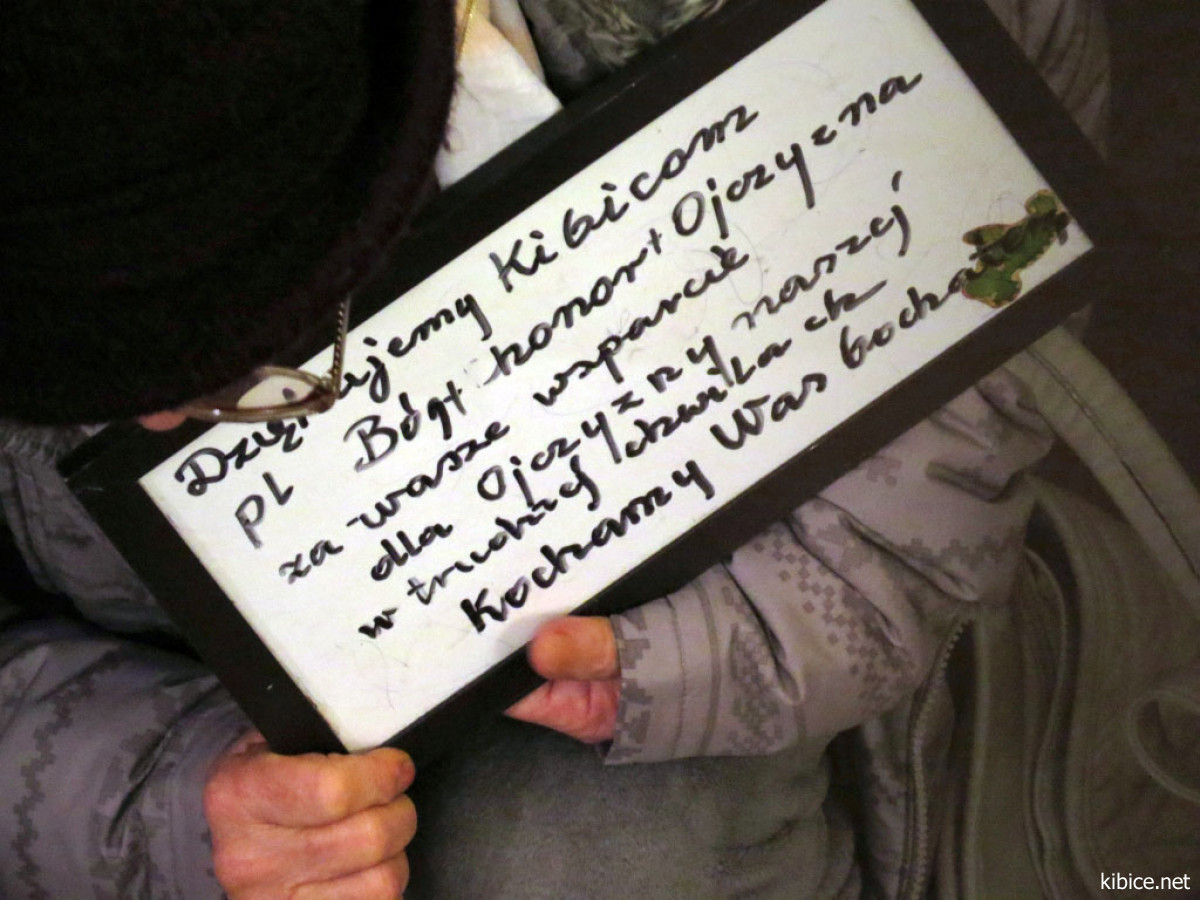 Dziękujemy Kibicom
pl Bóg+honor+Ojczyzna
za wasze wsparcie
dla Ojczyzny naszej
w trudnych chwilach
Kochamy Was
kibice.net